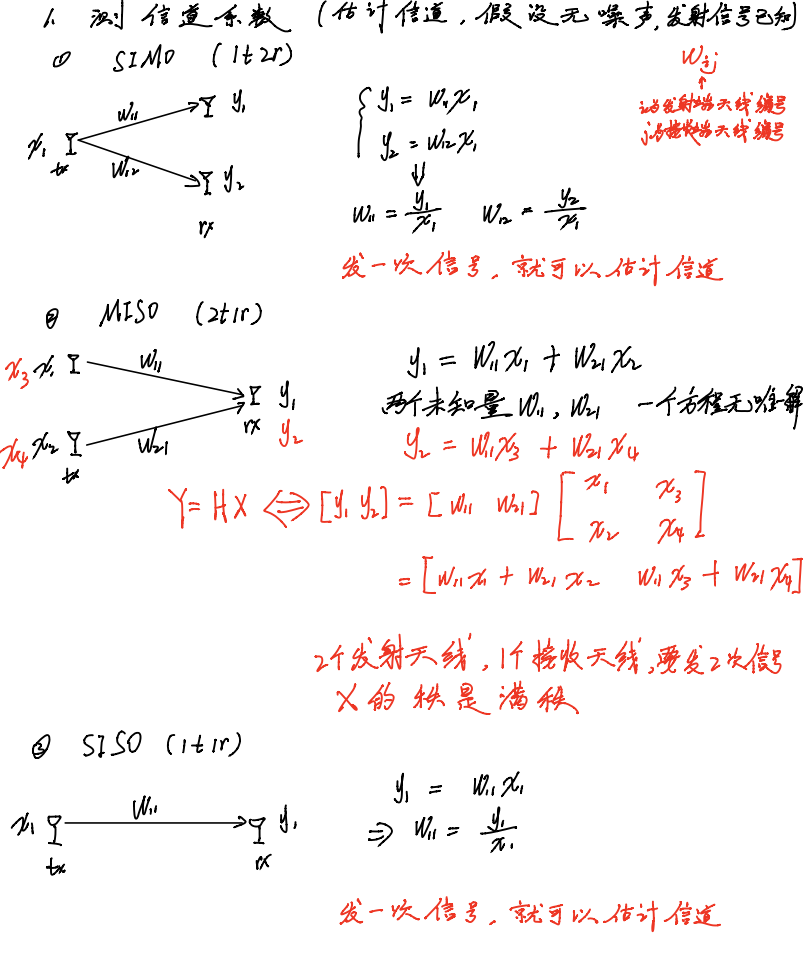 1. 测信道系数 (估计信道，假设无噪声，发射信号已知)
① SIMO (1t2r)
W_ij
↑
i为发射端天线编号
j为接收端天线编号
x₁ tx W₁₁ y₁
W₁₂ y₂
rx
{ y₁ = W₁₁x₁
y₂ = W₁₂x₁
⇓
W₁₁ = y₁/x₁ W₁₂ = y₂/x₁
发一次信号，就可以估计信道
② MISO (2t1r)
x₃ x₁ W₁₁
x₄ x₂ W₂₁
tx
rx y₁
y₂
y₁ = W₁₁x₁ + W₂₁x₂
两个未知量W₁₁, W₂₁ 一个方程无唯一解
y₂ = W₁₁x₃ + W₂₁x₄
Y = HX ⇔ [y₁ y₂] = [W₁₁ W₂₁] [x₁ x₃
x₂ x₄]
= [W₁₁x₁ + W₂₁x₂ W₁₁x₃ + W₂₁x₄]
2个发射天线，1个接收天线，要发2次信号
X的秩是满秩
③ SISO (1t1r)
x₁ W₁₁ y₁
tx rx
y₁ = W₁₁x₁
⇒ W₁₁ = y₁/x₁
发一次信号，就可以估计信道